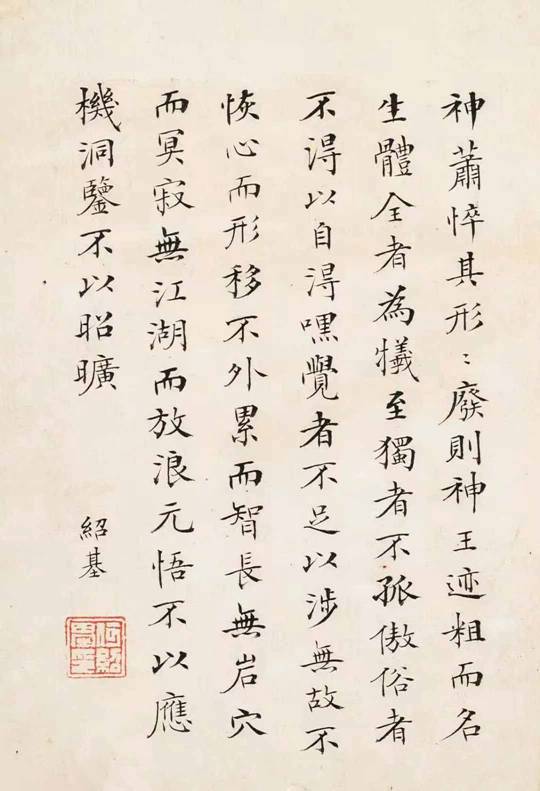 神蕭悴其形〻廢則神王迹粗而名
生體全者為犧至獨者不孤傲俗者
不得以自淂嘿覺者不足以涉無故不
恢心而形移不外累而智長無岩穴
而冥寂無江湖而放浪元悟不以應
機洞鑒不以昭曠
紹基
何紹基印